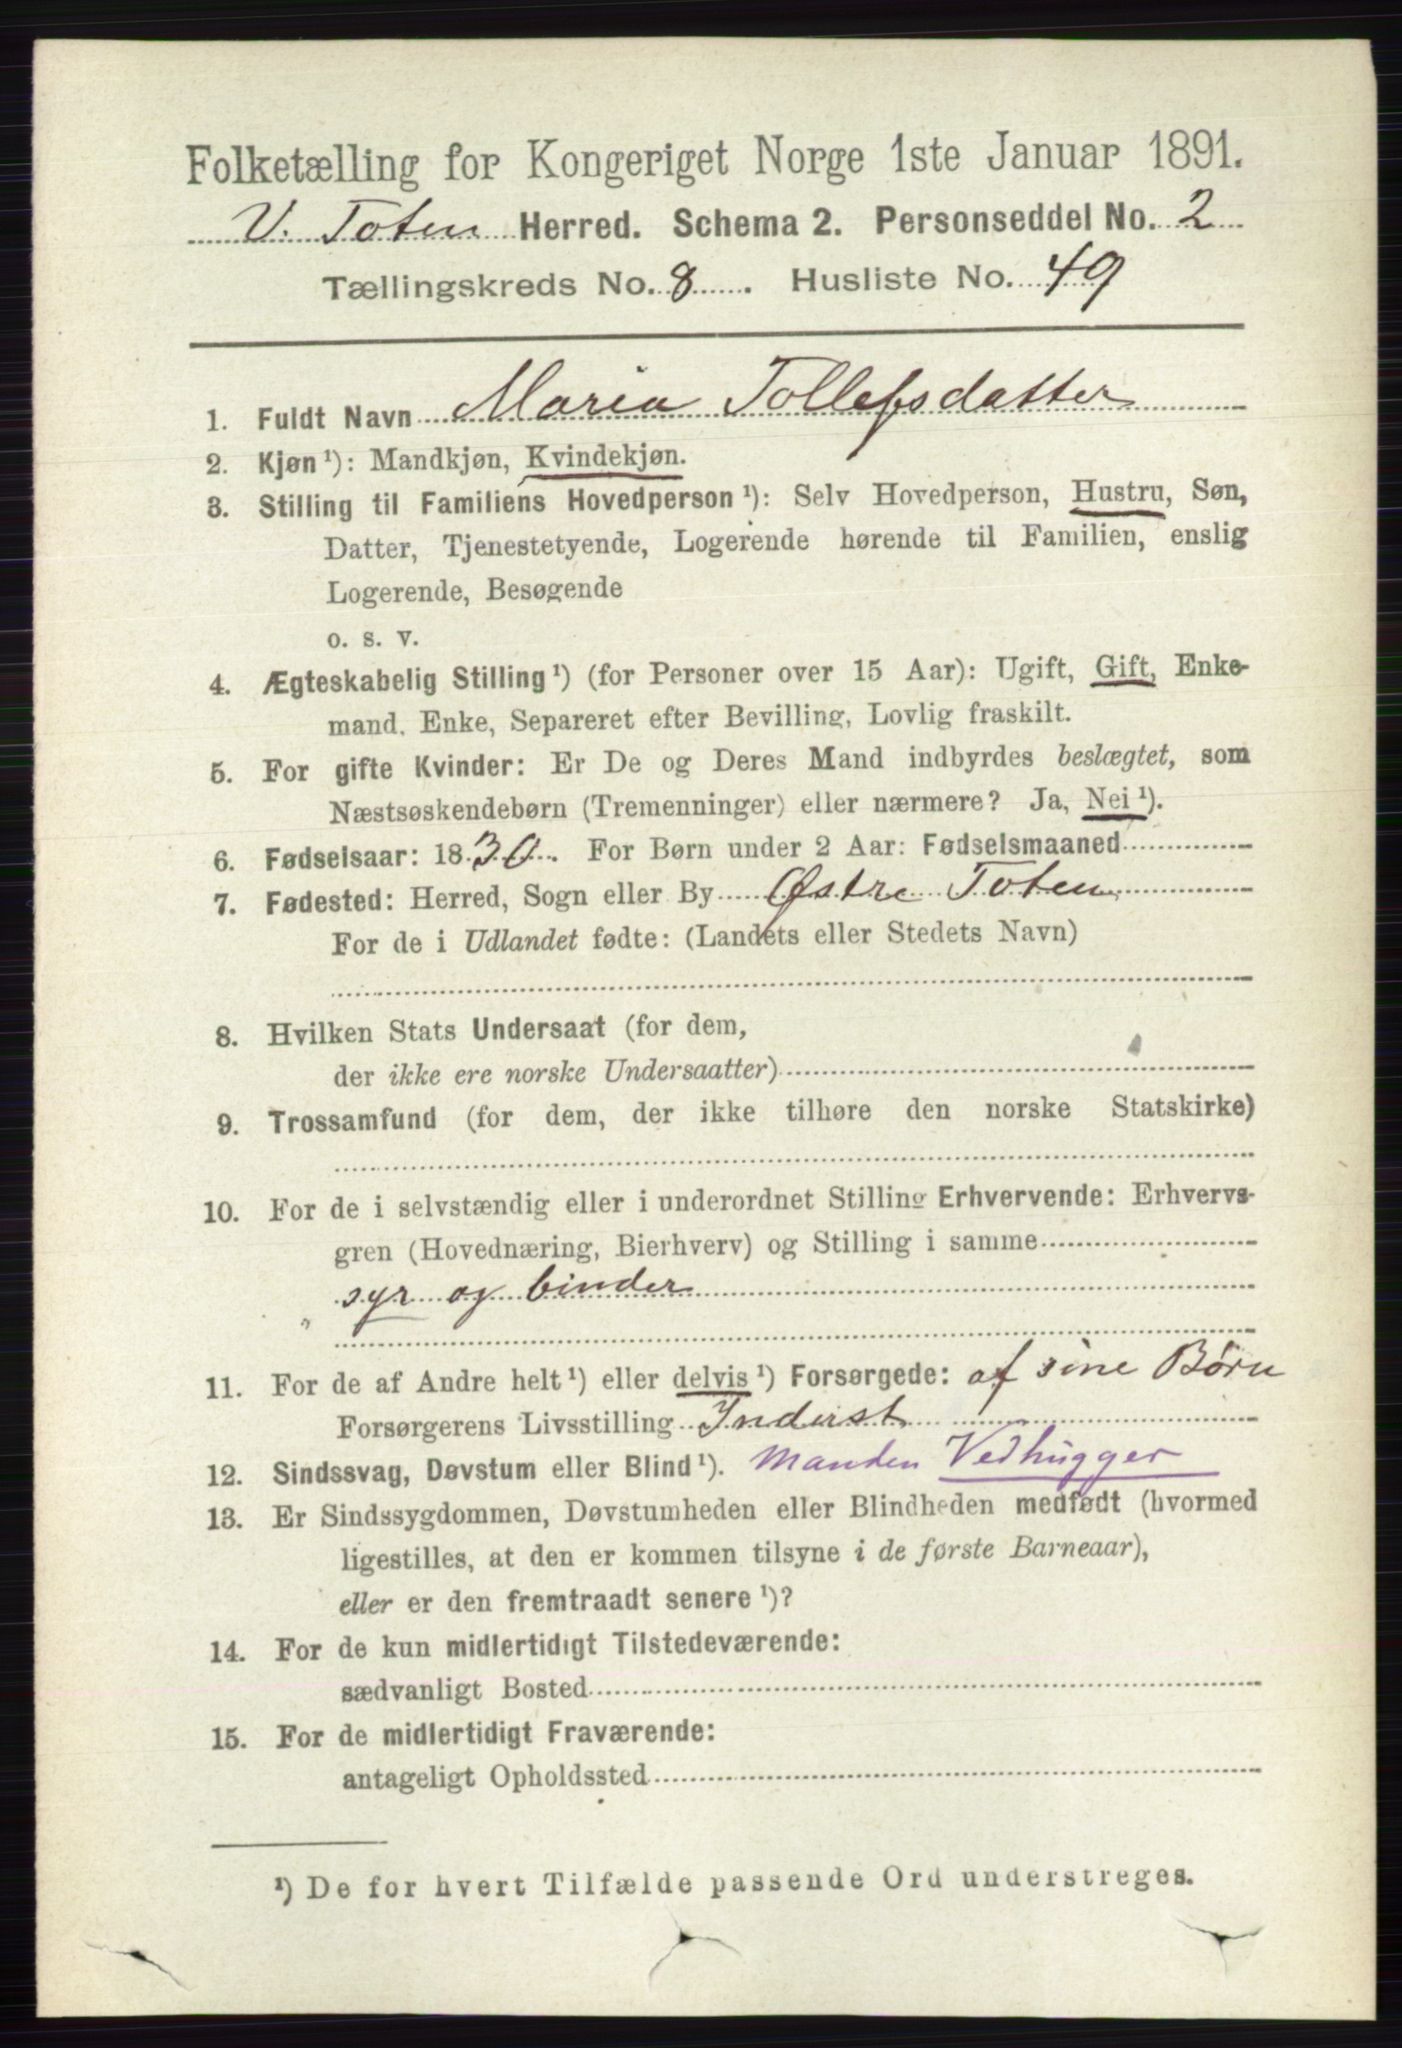 Folketælling for Kongeriget Norge 1ste Januar 1891.
V. Toten Herred. Schema 2. Personseddel No. 2
Tællingskreds No. 8. Husliste No. 49
1. Fuldt Navn Maria Tollefsdatter
2. Kjøn ¹): Mandkjøn, Kvindekjøn.
3. Stilling til Familiens Hovedperson ¹): Selv Hovedperson, Hustru, Søn,
Datter, Tjenestetyende, Logerende hørende til Familien, enslig
Logerende, Besøgende
o. s. v.
4. Ægteskabelig Stilling ¹) (for Personer over 15 Aar): Ugift, Gift, Enke-
mand, Enke, Separeret efter Bevilling, Lovlig fraskilt.
5. For gifte Kvinder: Er De og Deres Mand indbyrdes beslægtet, som
Næstsøskendebørn (Tremenninger) eller nærmere? Ja, Nei ¹).
6. Fødselsaar: 1830. For Børn under 2 Aar: Fødselsmaaned
7. Fødested: Herred, Sogn eller By Østre Toten
For de i Udlandet fødte: (Landets eller Stedets Navn)
8. Hvilken Stats Undersaat (for dem,
der ikke ere norske Undersaatter)
9. Trossamfund (for dem, der ikke tilhøre den norske Statskirke)
10. For de i selvstændig eller i underordnet Stilling Erhvervende: Erhvervs-
gren (Hovednæring, Bierhverv) og Stilling i samme
syr og binder
11. For de af Andre helt ¹) eller delvis ¹) Forsørgede: af sine Børn
Forsørgerens Livsstilling Inderst
12. Sindssvag, Døvstum eller Blind ¹). Manden Vedhugger
13. Er Sindssygdommen, Døvstumheden eller Blindheden medfødt (hvormed
ligestilles, at den er kommen tilsyne i de første Barneaar),
eller er den fremtraadt senere ¹)?
14. For de kun midlertidigt Tilstedeværende:
sædvanligt Bosted
15. For de midlertidigt Fraværende:
antageligt Opholdssted
¹) De for hvert Tilfælde passende Ord understreges.